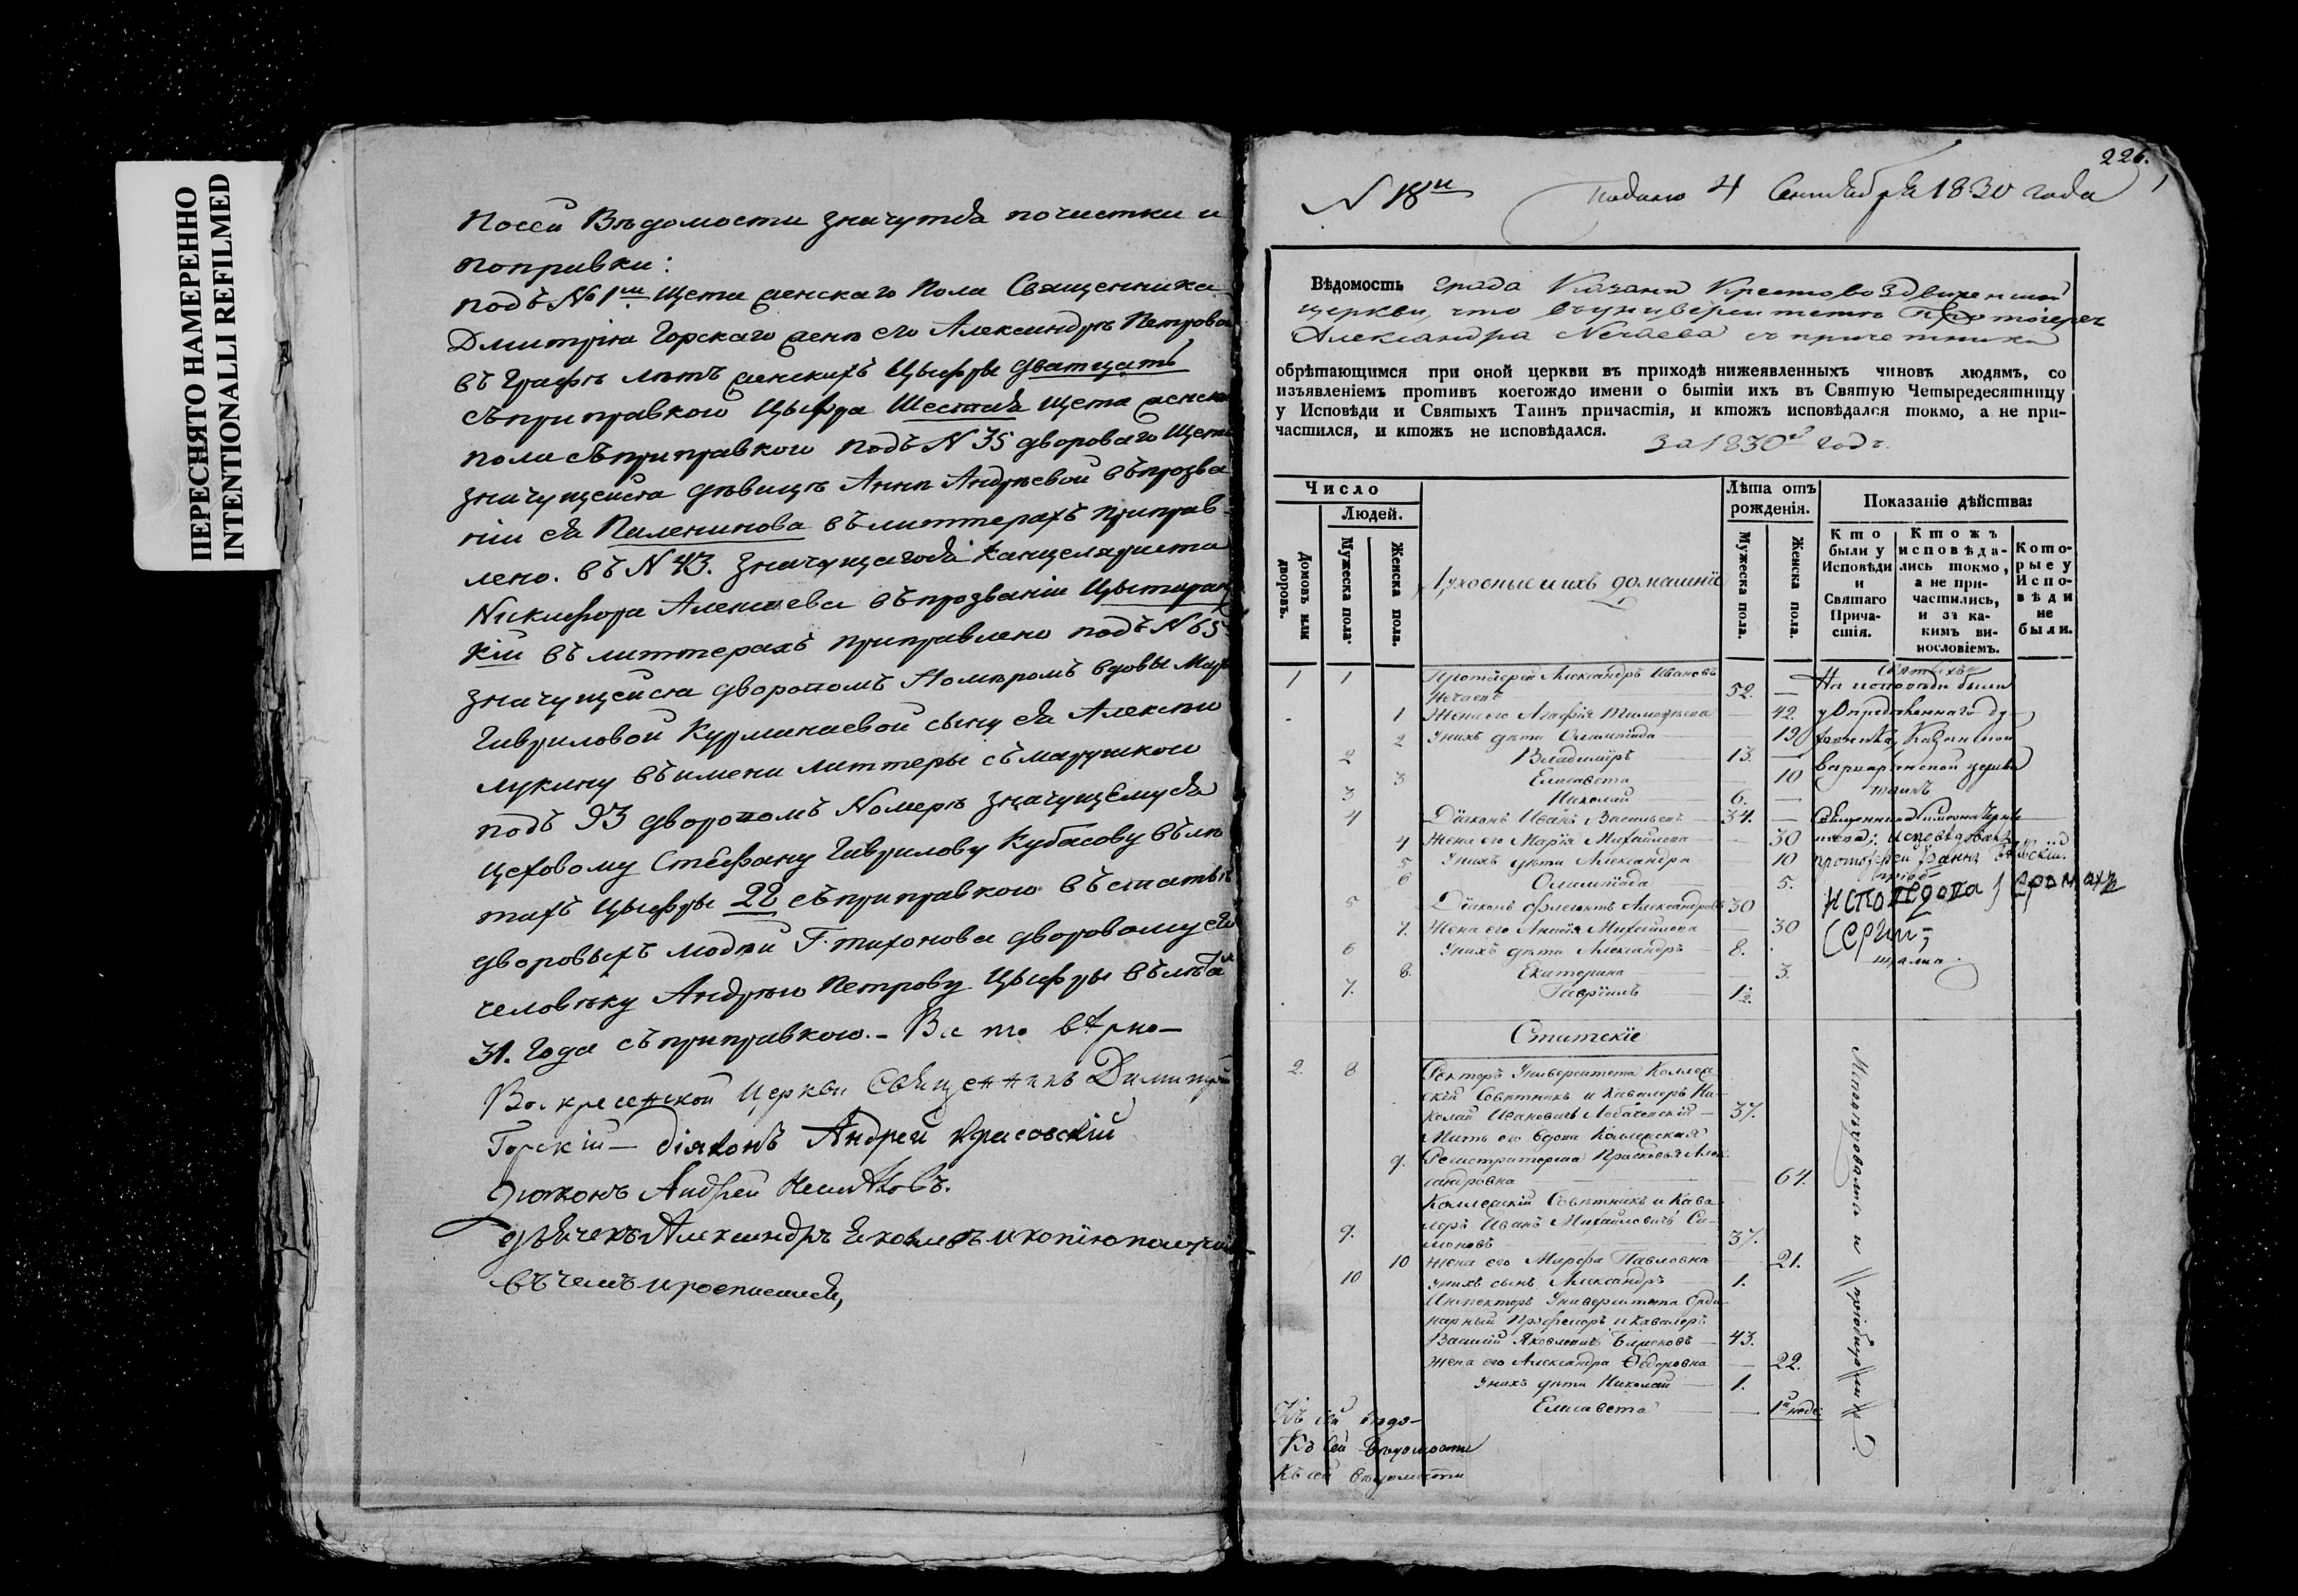 ПЕРЕСНЯТО НАМЕРЕННО
INTENTIONALLI REFILMED
По сей Вѣдомости значутся почистки и
поправки:
подъ № 1м щета женскаго пола Священника
Дмитрія Горскаго жены его Александры Петровой
въ графѣ лѣтъ женскихъ цыфры дватцать
съ приправкою цыфра шестая щета женска
пола съ приправкою подъ N 35 двороваго щета
значущейся дѣвицѣ Анны Андреевой въ прозва
ніи ея Паленинова въ литтерахъ приправ-
лено. въ N 43. значущагося Канцеляриста
Никифора Алексеева въ прозваніи
кій въ литтерахъ приправлено подъ N 65
значущейся дворопомъ Номеромъ вдовы
Гавриловой Курманаевой сыну ея Алексею
Лукину въ имени литтеры съ марушкою
подъ 93 дворопомъ Номеръ значущемуся
цеховому Стефану Гаврилову Кубасову въ лѣ
тахъ цыфры 22 съ приправкою въ статьѣ
дворовыхъ людей Г. Тихонова дворовому его
человѣку Андрею Петрову цыфры въ лѣта
31. года съ приправкою. - Все то вѣрно -
Воскресенской Церкви Священникъ Димитрій
Горскій - діяконъ Андрей Красовскій
Діяконъ Андрей
дьячекъ Александръ Яковлевъ и копію получилъ
въ чемъ и росписался,
226.
N 18й Подано 4 Сентября 1830 года
Вѣдомость града Казани Крестовоздвиженской
церкви, что въ университетѣ Протоіерея
Александра Нечаева съ причетники
обрѣтающимся при оной церкви въ приходѣ нижеявленныхъ чиновъ людямъ, со
изъявленіемъ противъ коегождо имени о бытіи ихъ въ Святую Четыредесятницу
у Исповѣди и Святыхъ Таинъ причастія, и ктожъ исповѣдался токмо, а не при-
частился, и ктожъ не исповѣдался.
За 1830й годъ.
Число
Людей.
Домовъ или дворовъ.
Мужеска пола.
Женска пола.
Духовные и ихъ домашніе
Лѣта отъ рожденія.
Мужеска пола.
Женска пола.
Показаніе дѣйства:
Кто были у Исповѣди и Святаго Прича-стія.
Ктожъ исповѣда-лись токмо, а не при-частились, и за ка-кимъ ви-нословіемъ.
Кото-рые у Испо-вѣди не были.
1 1 Протоіерей Александръ Ивановъ
Нечаевъ 52. —
1 Жена его Агафія Тимофѣева — 42.
2 У нихъ дѣти Олимпіада — 19
2 Владимиръ 13. —
3 Елисавета — 10
3 Николай 6. —
4 Діаконъ Иванъ Васильевъ 34. —
4 Жена его Марія Михайлова — 30
5 У нихъ дѣти Александра 10
6 Олимпіада 5.
5 Діаконъ Флегонтъ Александровъ 30
7. Жена его Анисія Михайлова — 30
6 У нихъ дѣти Александръ 8.
8. Екатерина — 3.
7. Гавріилъ 1½
На исповѣди были
у Опредѣленнаго ду-
ховника, Казанской
Варваринской церкви
Священника Симеона
протоіерей
исповѣдовалъ Іеромонахъ
Сергій
Статскіе
2. 8 Ректоръ Университета Коллеж-
скій Совѣтникъ и Кавалеръ Ни-
колай Ивановичъ Лобачевскій — 37.
Мать его вдова Коллежская
9. Регистраторша Прасковья Алек-
сандровна — 64.
Коллежскій Совѣтникъ и Кава-
9. леръ Иванъ Михайловичъ Си-
моновъ 37.
10 Жена его Марфа Павловна 21.
10 У нихъ сынъ Александръ 1.
Инспекторъ Университета Орди-
нарный Профессоръ и Кавалеръ
Василій Яковлевичъ Булыгинъ 43.
Жена его Александра Ѳедоровна — 22.
У нихъ дѣти Николай 1.
Елисавета — 1й
Исповѣдовались и пріобщались
Къ сей вѣдо-
Къ сей вѣдомости
Къ сей вѣдомости